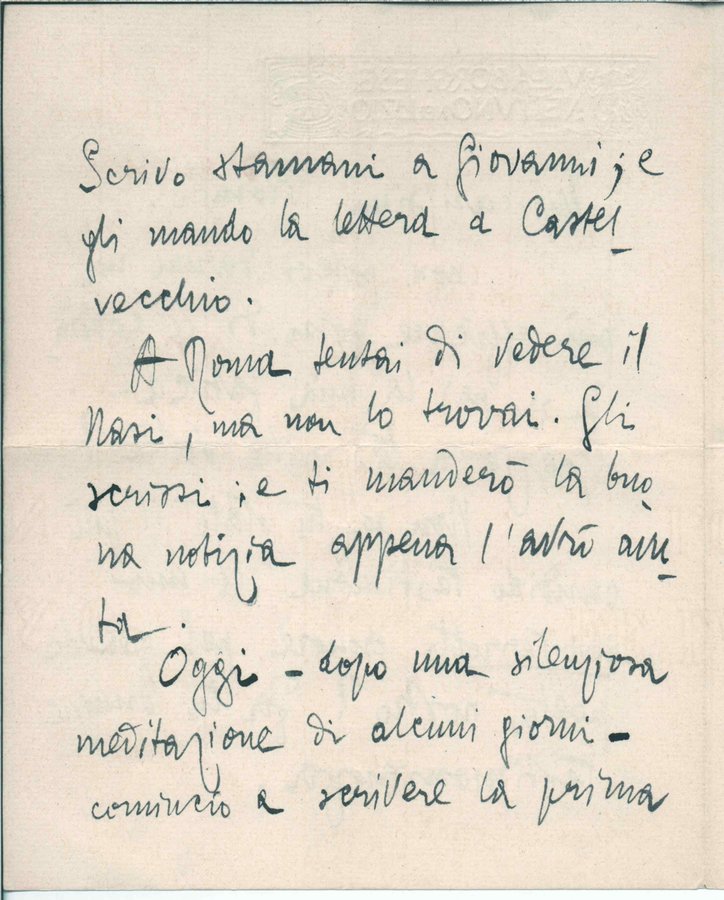 Scrivo stamani a Giovanni; e
gli mando la lettera a Castel_
vecchio.
A Roma tentai di vedere il
Nasi, ma non lo trovai. Gli
scrissi; e ti manderò la buo
na notizia appena l'avrò avu_
ta.
Oggi – dopo una silenziosa
meditazione di alcuni giorni –
comincio a scrivere la prima